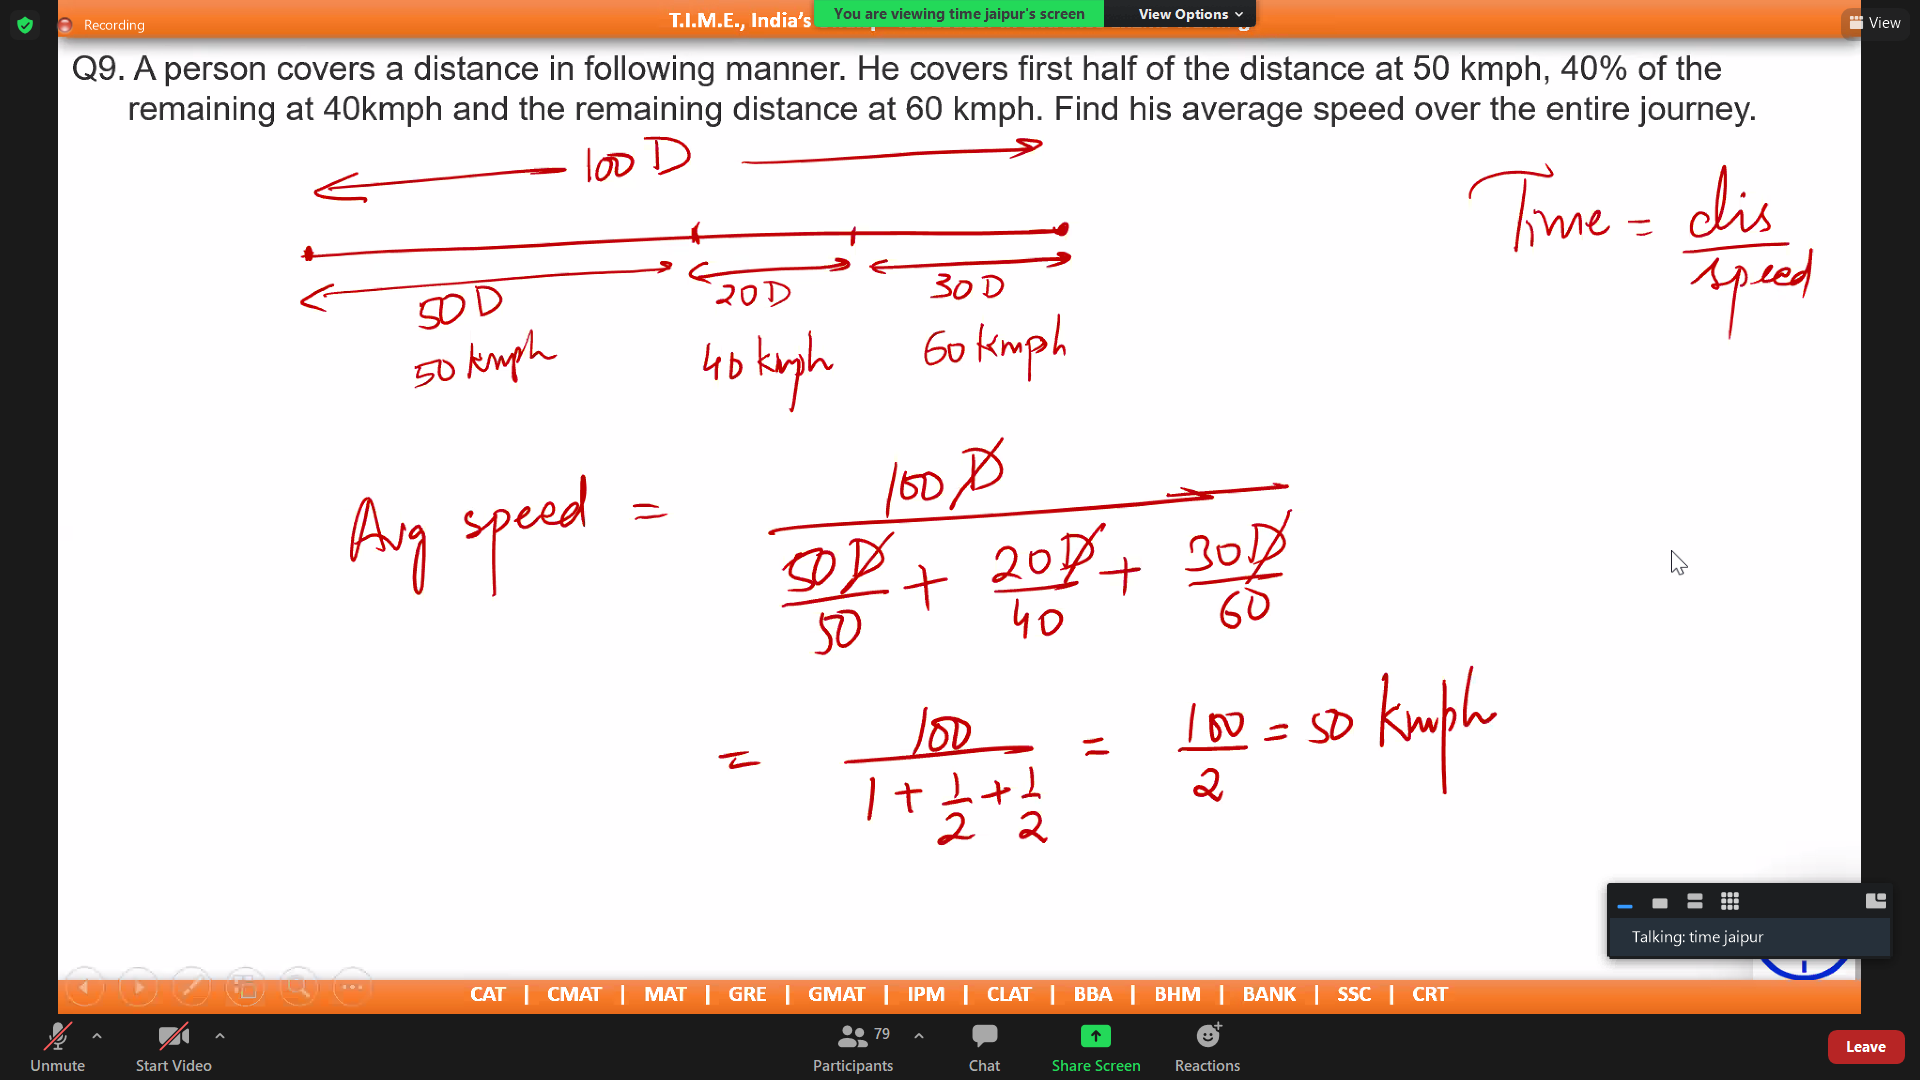 Recording
T.I.M.E., India's
You are viewing time jaipur's screen
View Options
View
Q9. A person covers a distance in following manner. He covers first half of the distance at 50 kmph, 40% of the
remaining at 40kmph and the remaining distance at 60 kmph. Find his average speed over the entire journey.
100 D
Time = dis / speed
50 D 20 D 30 D
50 kmph 40 kmph 60 kmph
Avg speed = 100 D / (50 D / 50 + 20 D / 40 + 30 D / 60)
= 100 / (1 + 1/2 + 1/2) = 100 / 2 = 50 kmph
Talking: time jaipur
CAT | CMAT | MAT | GRE | GMAT | IPM | CLAT | BBA | BHM | BANK | SSC | CRT
Unmute
Start Video
79
Participants
Chat
Share Screen
Reactions
Leave